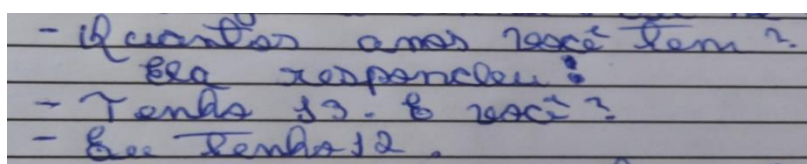 - Quantos anos você tem?
Ela respondeu:
- Tenho 13. E você?
- Eu tenho 12.